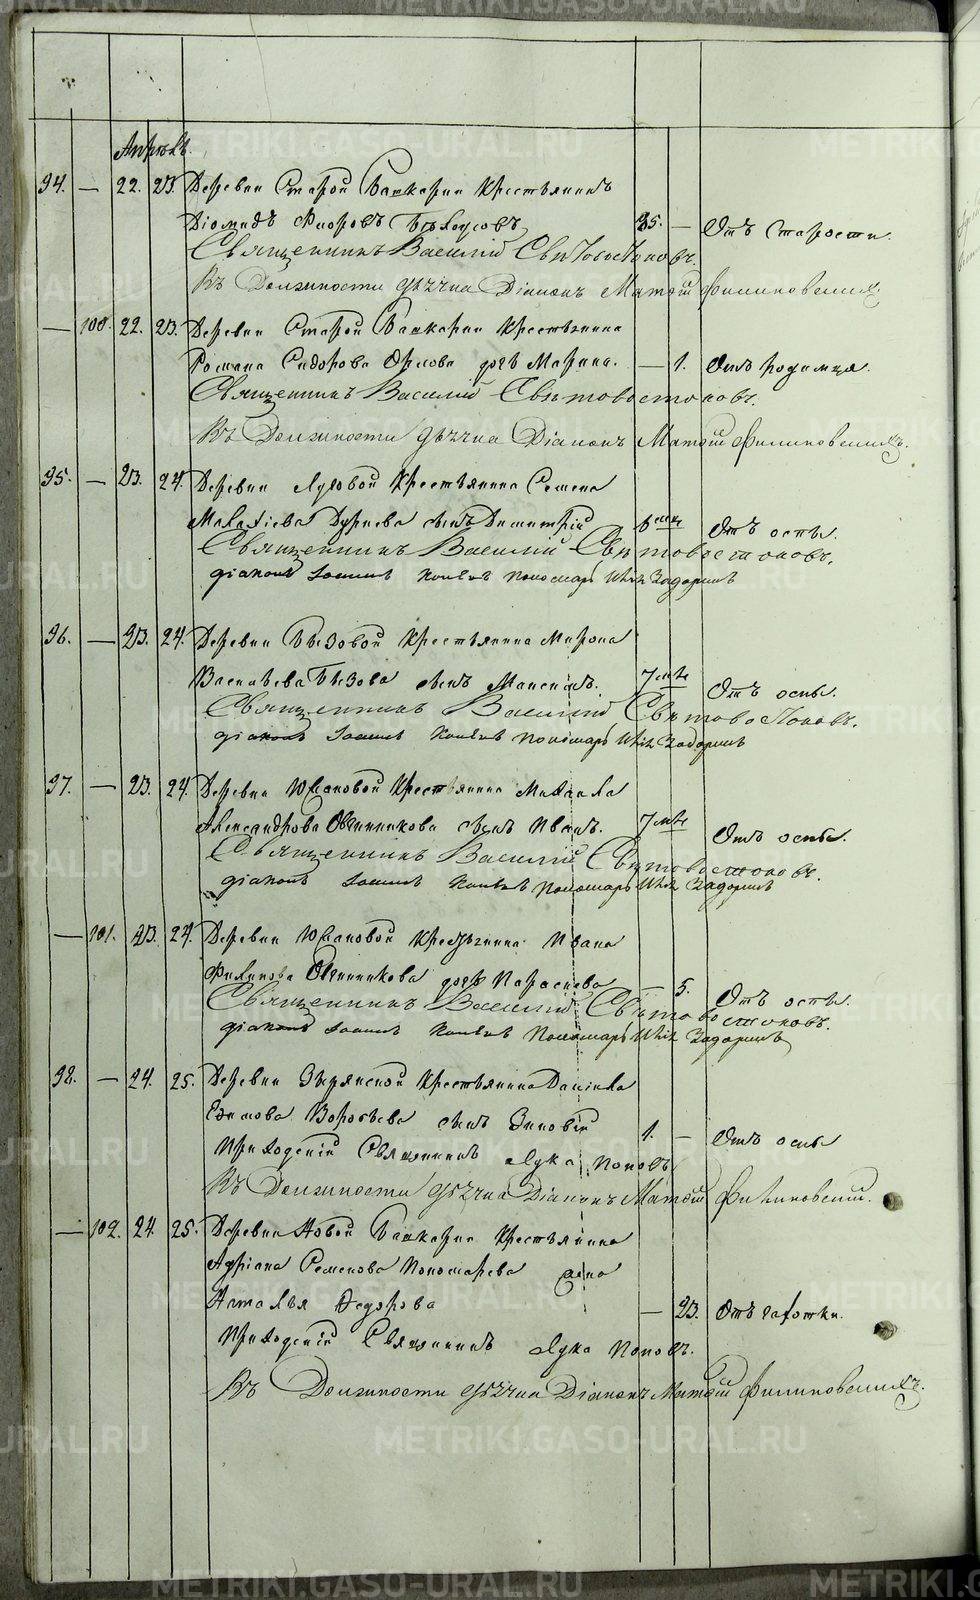 Апрѣль.
94. — 22. 23. Деревни Старой Башкарки Крестьянинъ
Діомидъ Фроловъ Бѣлоусовъ 85. — Отъ старости.
Священникъ Василій Свѣтовостоковъ.
Въ Должности дьячка Діаконъ Матѳій Филиповскихъ
— 100. 22. 23. Деревни Старой Башкарки Крестьянина
Романа Сидорова Орлова дочь Марина. — 1. Отъ родимца.
Священникъ Василій Свѣтовостоковъ.
Въ Должности дьячка Діаконъ Матѳій Филиповскихъ.
95. — 23. 24. Деревни Луговой Крестьянина Семена
Малахіева Дурнева сынъ Димитрій 6 мѣс Отъ оспы.
Священникъ Василій Свѣтовостоковъ.
діаконъ Іоаннъ Пономарь Задоринъ
96. — 23. 24. Деревни Бызовой Крестьянина Мирона
Васильева Бызова сынъ Максимъ. 7 мѣс Отъ оспы.
Священникъ Василій Свѣтовостоковъ.
діаконъ Іоаннъ Пономарь Задоринъ
97. — 23. 24. Деревни Крестьянина Михаила
Александрова Овчинникова сынъ Иванъ. 7 мѣс Отъ оспы.
Священникъ Василій Свѣтовостоковъ.
діаконъ Іоаннъ Пономарь Задоринъ
— 101. 23. 24. Деревни Крестьянина Ивана
Филипова Овчинникова дочь Параскева — 5. Отъ оспы.
Священникъ Василій Свѣтовостоковъ.
діаконъ Іоаннъ Пономарь Задоринъ
98. — 24. 25. Деревни Зырянской Крестьянина Даніила
Ефимова Воробьева сынъ Зиновій 1. — Отъ оспы
Приходскій Священникъ Лука Поповъ
Въ Должности дьячка Діаконъ Матѳій Филиповский.
— 102. 24. 25. Деревни Новой Башкарки Крестьянина
Адріана Семенова Пономарева жена
Наталья Федорова — 23. Отъ чахотки.
Приходскій Священникъ Лука Поповъ.
Въ Должности дьячка Діаконъ Матѳій Филиповскихъ.
METRIKI.GASO-URAL.RU